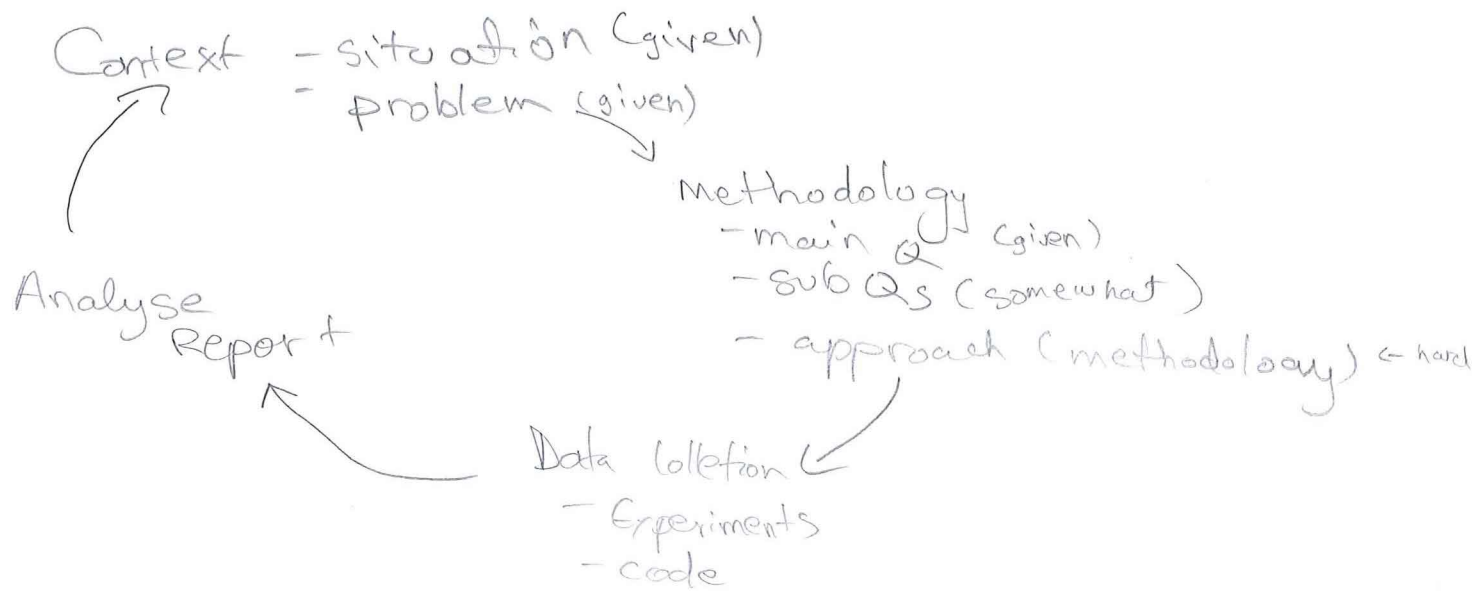 Context - situation (given)
- problem (given)
Methodology
- main Q (given)
- sub Qs (somewhat)
- approach (methodology) ← hard
Data Colletion
- Experiments
- code
Analyse
Report